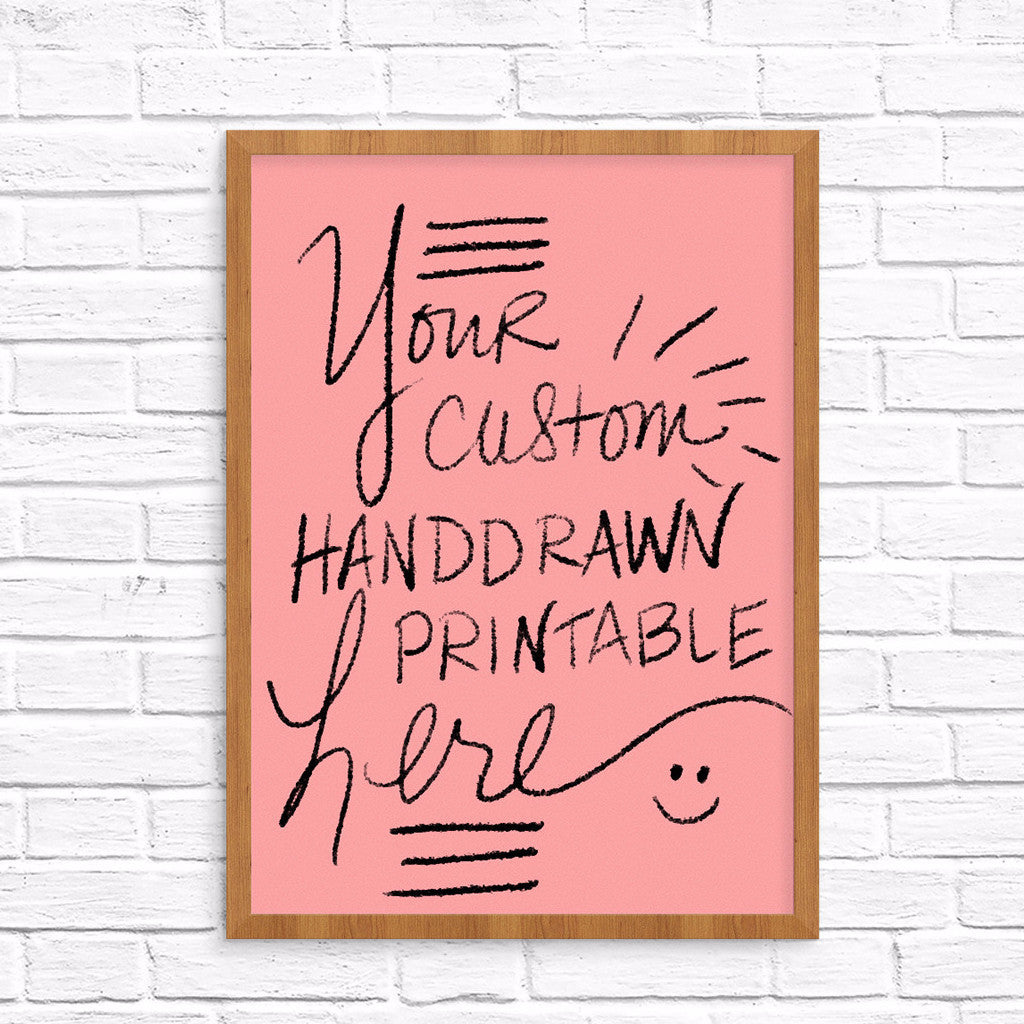 Your
custom
HANDDRAWN
PRINTABLE
here